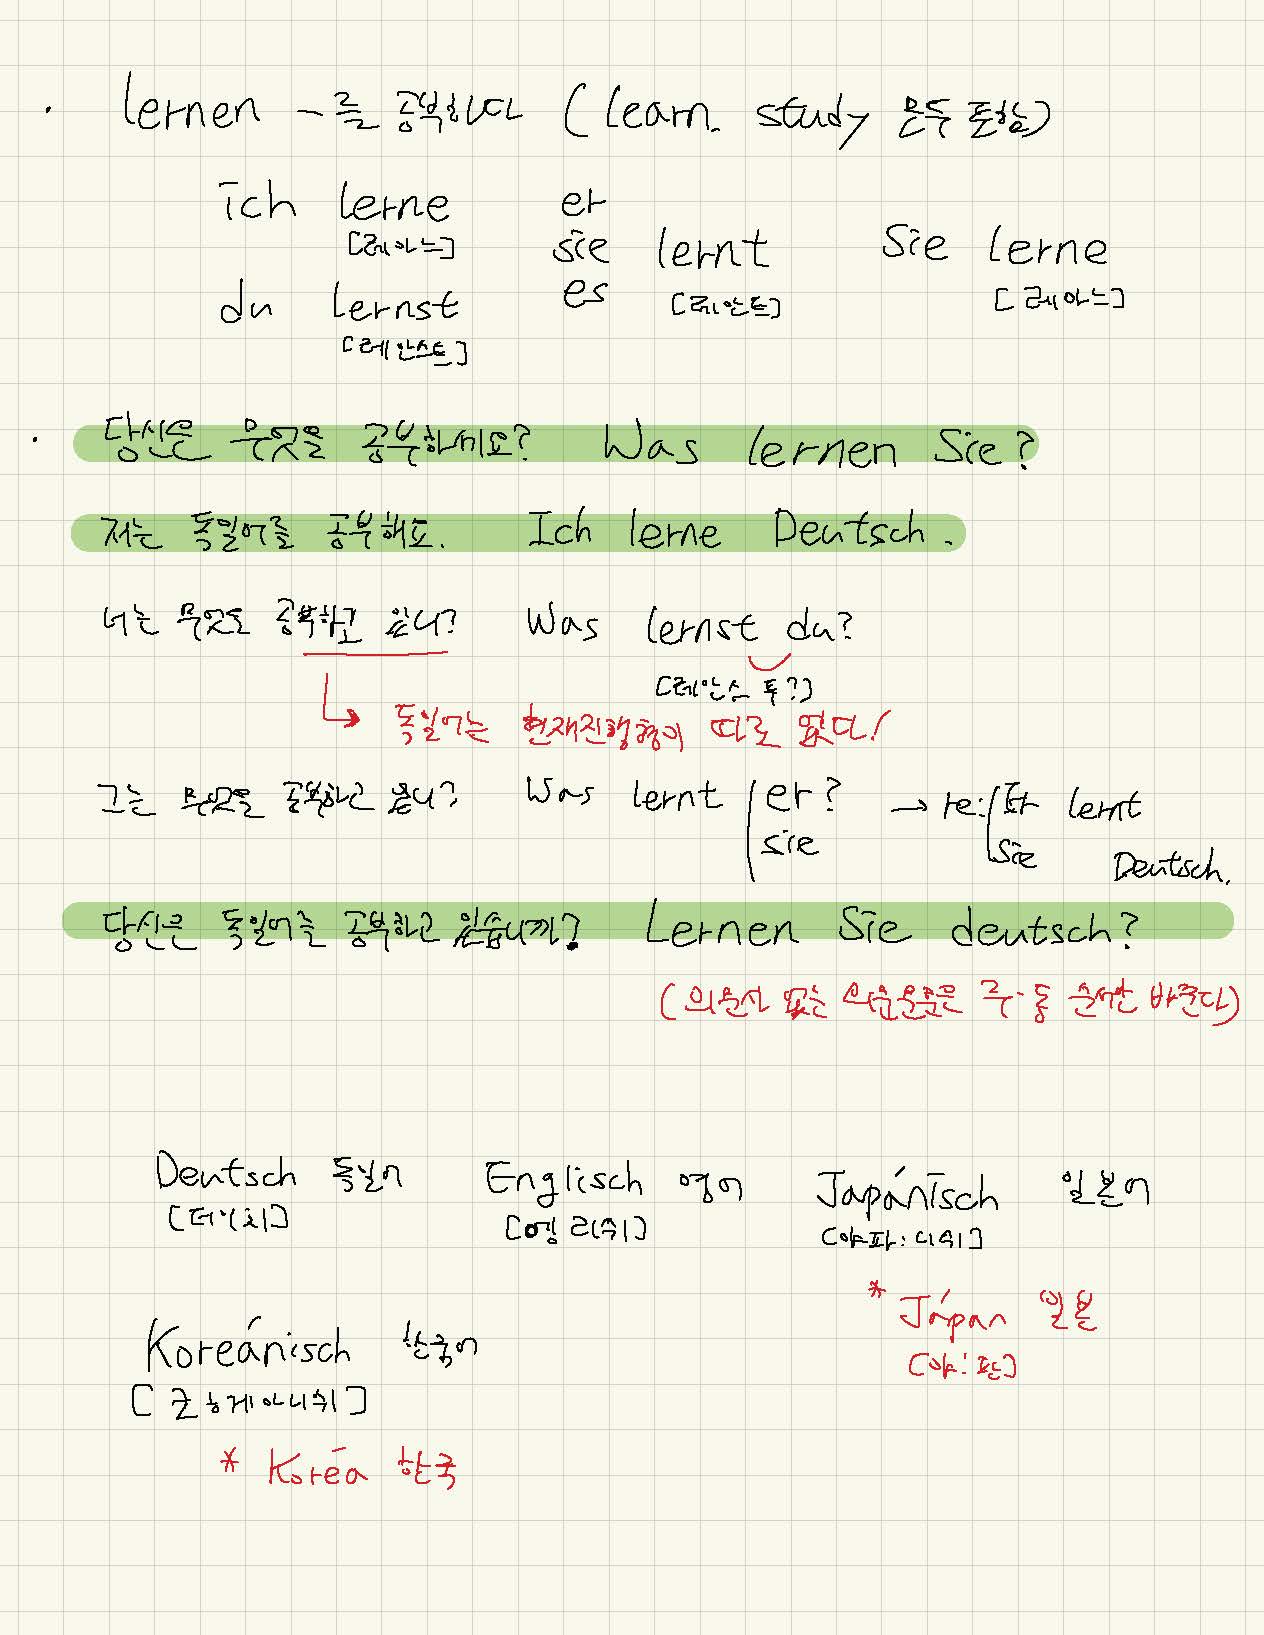 · lernen -를 공부하다 (learn. study 모두 포함)
ich lerne er
[레아느] sie lernt Sie lerne
du lernst es [레안트] [레아느]
[레안스트]
· 당신은 무엇을 공부하세요? Was lernen Sie?
저는 독일어를 공부해요. Ich lerne Deutsch.
너는 무엇을 공부하고 있니? Was lernst du?
[레안스 투?]
↳ 독일어는 현재진행형이 따로 없다!
그는 무엇을 공부하고 있니? Was lernt er? → re: Er lernt
sie Sie Deutsch.
당신은 독일어를 공부하고 있습니까? Lernen Sie deutsch?
(의문사 없는 의문문은 주·동 순서만 바꾼다)
Deutsch 독일어 Englisch 영어 Japánisch 일본어
[더이취] [엥리쉬] [야파:니쉬]
* Jápan 일본
[야:판]
Koreánisch 한국어
[코헤아니쉬]
* Koréa 한국